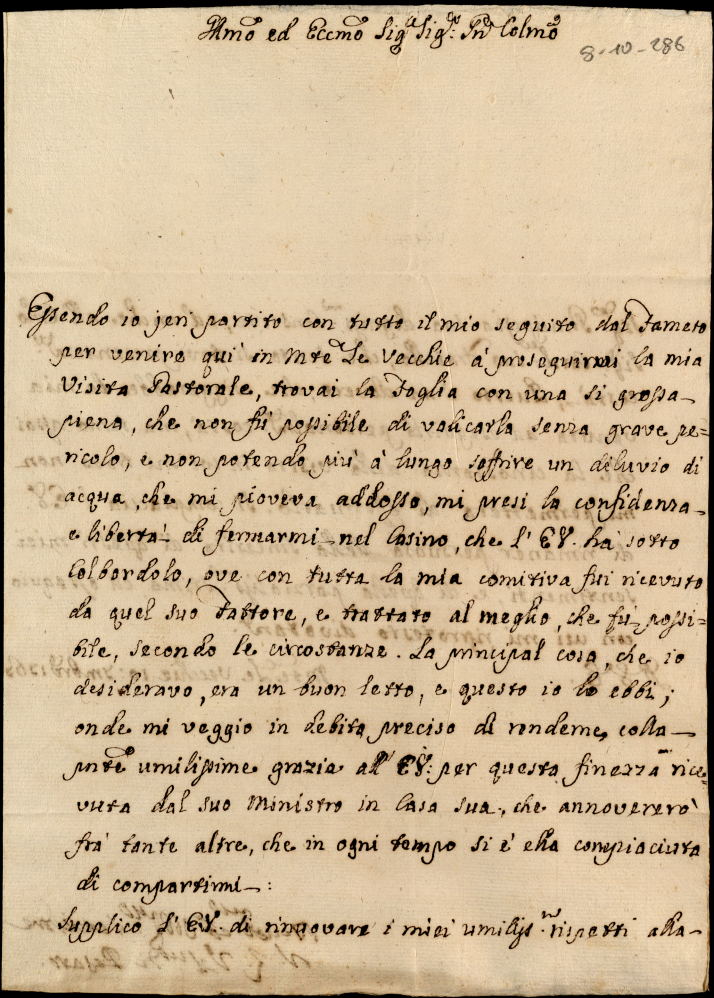 Illmo ed Eccmo Sigr Sigr Pne Colmo
8-10-286
Essendo io jeri partito con tutto il mio seguito dal Tameto
per venire quì in Mte Le Vecchie à proseguirmi la mia
Visita Pastorale, trovai la Foglia con una si grossa
piena, che non fù possibile di valicarla senza grave pe=
ricolo, e non potendo più à lungo soffrire un diluvio di
acqua, che mi pioveva addosso, mi presi la confidenza
e libertà di fermarmi nel Casino, che l' EV. ha sotto
Colbordolo, ove con tutta la mia comitiva fui ricevuto
da quel suo Fattore, e trattato al meglio, che fù possi=
bile, secondo le circostanze. La principal cosa, che io
desideravo, era un buon letto, e questo io lo ebbi;
onde mi veggio in debito preciso di renderne colla
pnte umilissime grazie all' EV: per questa finezza rice=
vuta dal suo Ministro in Casa sua, che annovererò
frà tante altre, che in ogni tempo si è ella compiaciuta
di compartirmi:
Supplico l' EV. di rinnovare i miei umiliss.mi rispetti alla